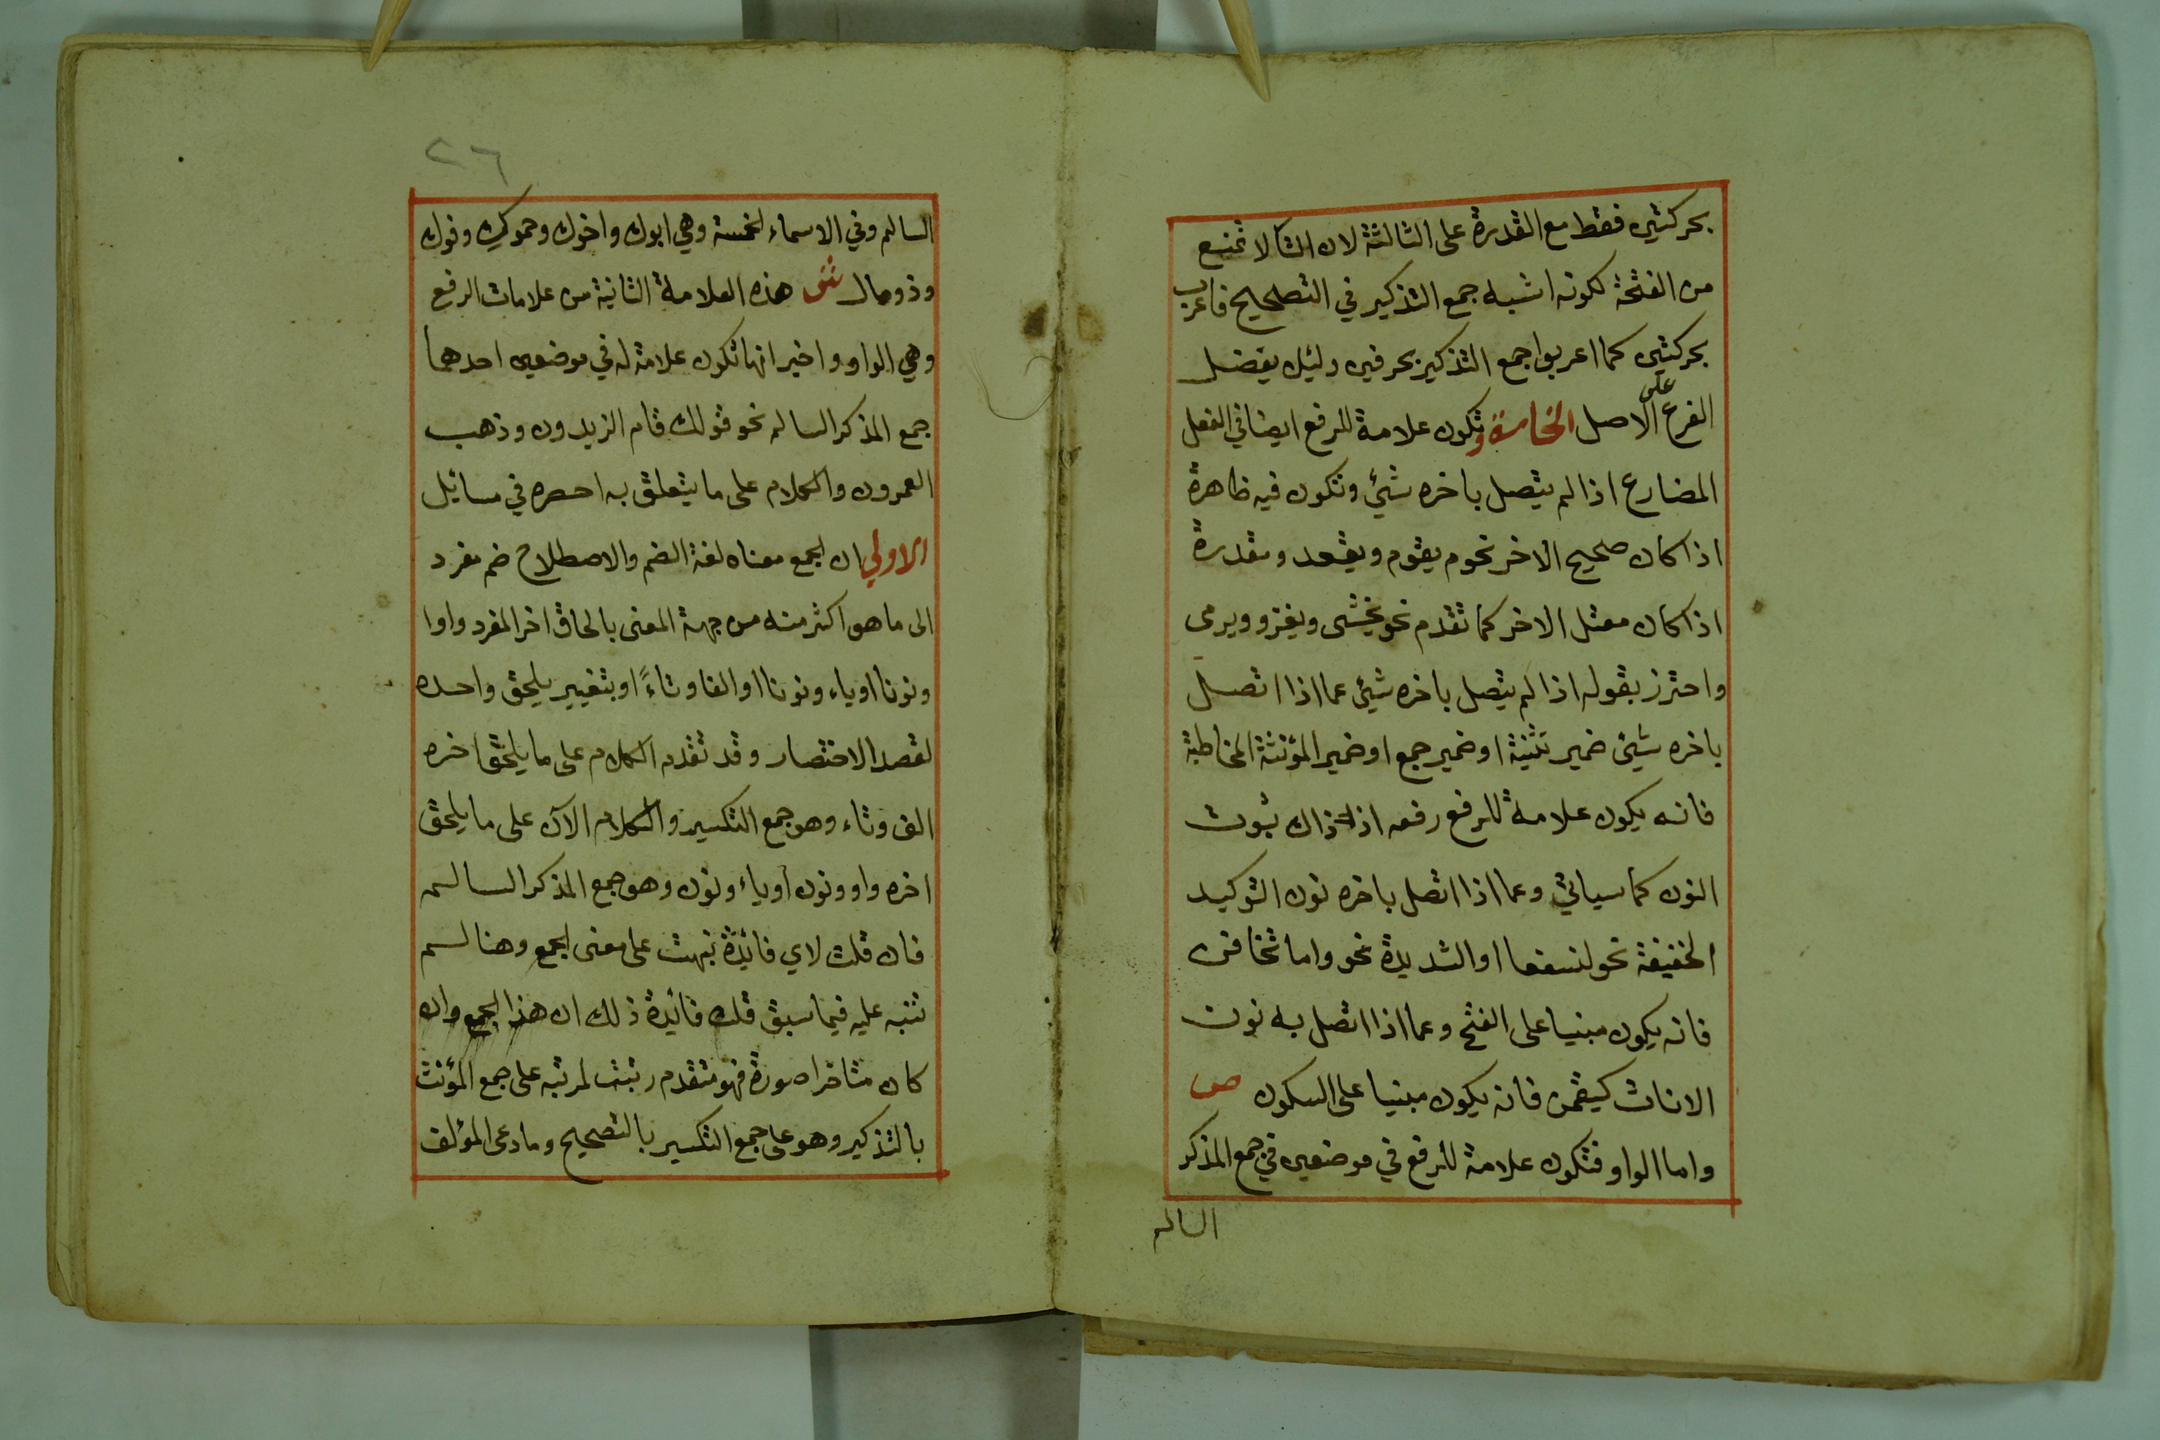 بحركتين فقط مع القدرة على الثالثة لان التا لا تمنع
من الفتحة لكونه اشبه جمع التذكير في التصحيح فاعرب
بحركتين كما اعربوا جمع التذكير بحرفين وليلا يفضل
الفرع على الاصل الخامسة وتكون علامة للرفع ايضا في الفعل
المضارع اذا لم يتصل باخره شيء وتكون فيه ظاهرة
اذا كان صحيح الاخر نحو م يقوم ويقعد ومقدرة
اذا كان معتل الاخر كما تقدم نحو يخشى ويغزو ويرمى
واحترز بقوله اذا لم يتصل باخره شيئ عما اذا اتصل
باخره شيئ ضمير تثنية او ضمير جمع او ضمير المؤنثة المخاطبة
فانه يكون علامة للرفع رفعه اذ ذاك بثبوت
النون كما سياتي وعما اذا اتصل باخره نون التوكيد
الخفيفة نحو لنسفعا او الشديدة نحو واما تخافن
فانه يكون مبنيا على الفتح وعما اذا اتصل به نون
الاناث كيقمن فانه يكون مبنيا على السكون ص
واما الواو فتكون علامة للرفع في موضعين في جمع المذكر
السالم
٢٦
السالم وفي الاسماء الخمسة وهي ابوك واخوك وحموك وفوك
وذو مال ش هذه العلامة الثانية من علامات الرفع
وهي الواو واخبر انها تكون علامة له في موضعين احدهما
جمع المذكر السالم نحو قولك قام الزيدون وذهب
العمرون والكلام على ما يتعلق به احصره في مسائل
الاولي ان الجمع معناه لغة الضم والاصطلاح ضم مفرد
الى ما هو اكثر منه من جهة المعنى بالحاق اخر المفرد واوا
ونونا او ياء ونونا او الفا وتاءً او بتغيير يلحق واحده
لقصد الاختصار وقد تقدم الكلام على ما يلحق اخره
الف وتاء وهو جمع التكسير والكلام الآن على ما يلحق
اخره واو ونون او ياء ونون وهو جمع المذكر السالم
فان قلت لاي فائدة نبهت على معنى الجمع وهنا لم
تنبه عليه فيما سبق قلت فائدة ذلك ان هذا الجمع وان
كان متاخرا صورة فهو متقدم رتبة لمرتبه على جمع المؤنث
بالتذكير وهو على جمع التكسير بالتصحيح وما دعى المؤلف